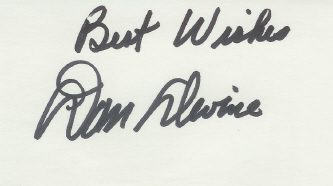 Best Wishes
Dan Devine